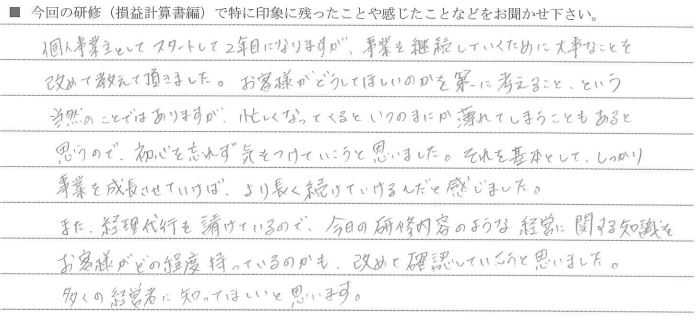 ■ 今回の研修（損益計算書編）で特に印象に残ったことや感じたことなどをお聞かせ下さい。
個人事業主としてスタートして2年目になりますが、事業を継続していくために大事なことを
改めて教えて頂きました。お客様がどうしてほしいのかを第一に考えること、という
当然のことではありますが、忙しくなってくるといつのまにか薄れてしまうこともあると
思うので、初心を忘れず気をつけていこうと思いました。それを基本として、しっかり
事業を成長させていけば、より長く続けていけるんだと感じました。
また、経理代行を請けているので、今日の研修内容のような経営に関する知識を
お客様がどの程度持っているのかも、改めて確認していこうと思いました。
多くの経営者に知ってほしいと思います。